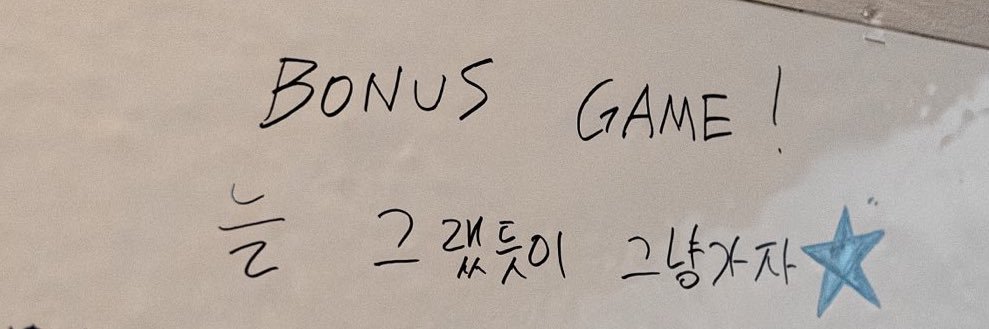 BONUS GAME!
늘 그랬듯이 그냥가자